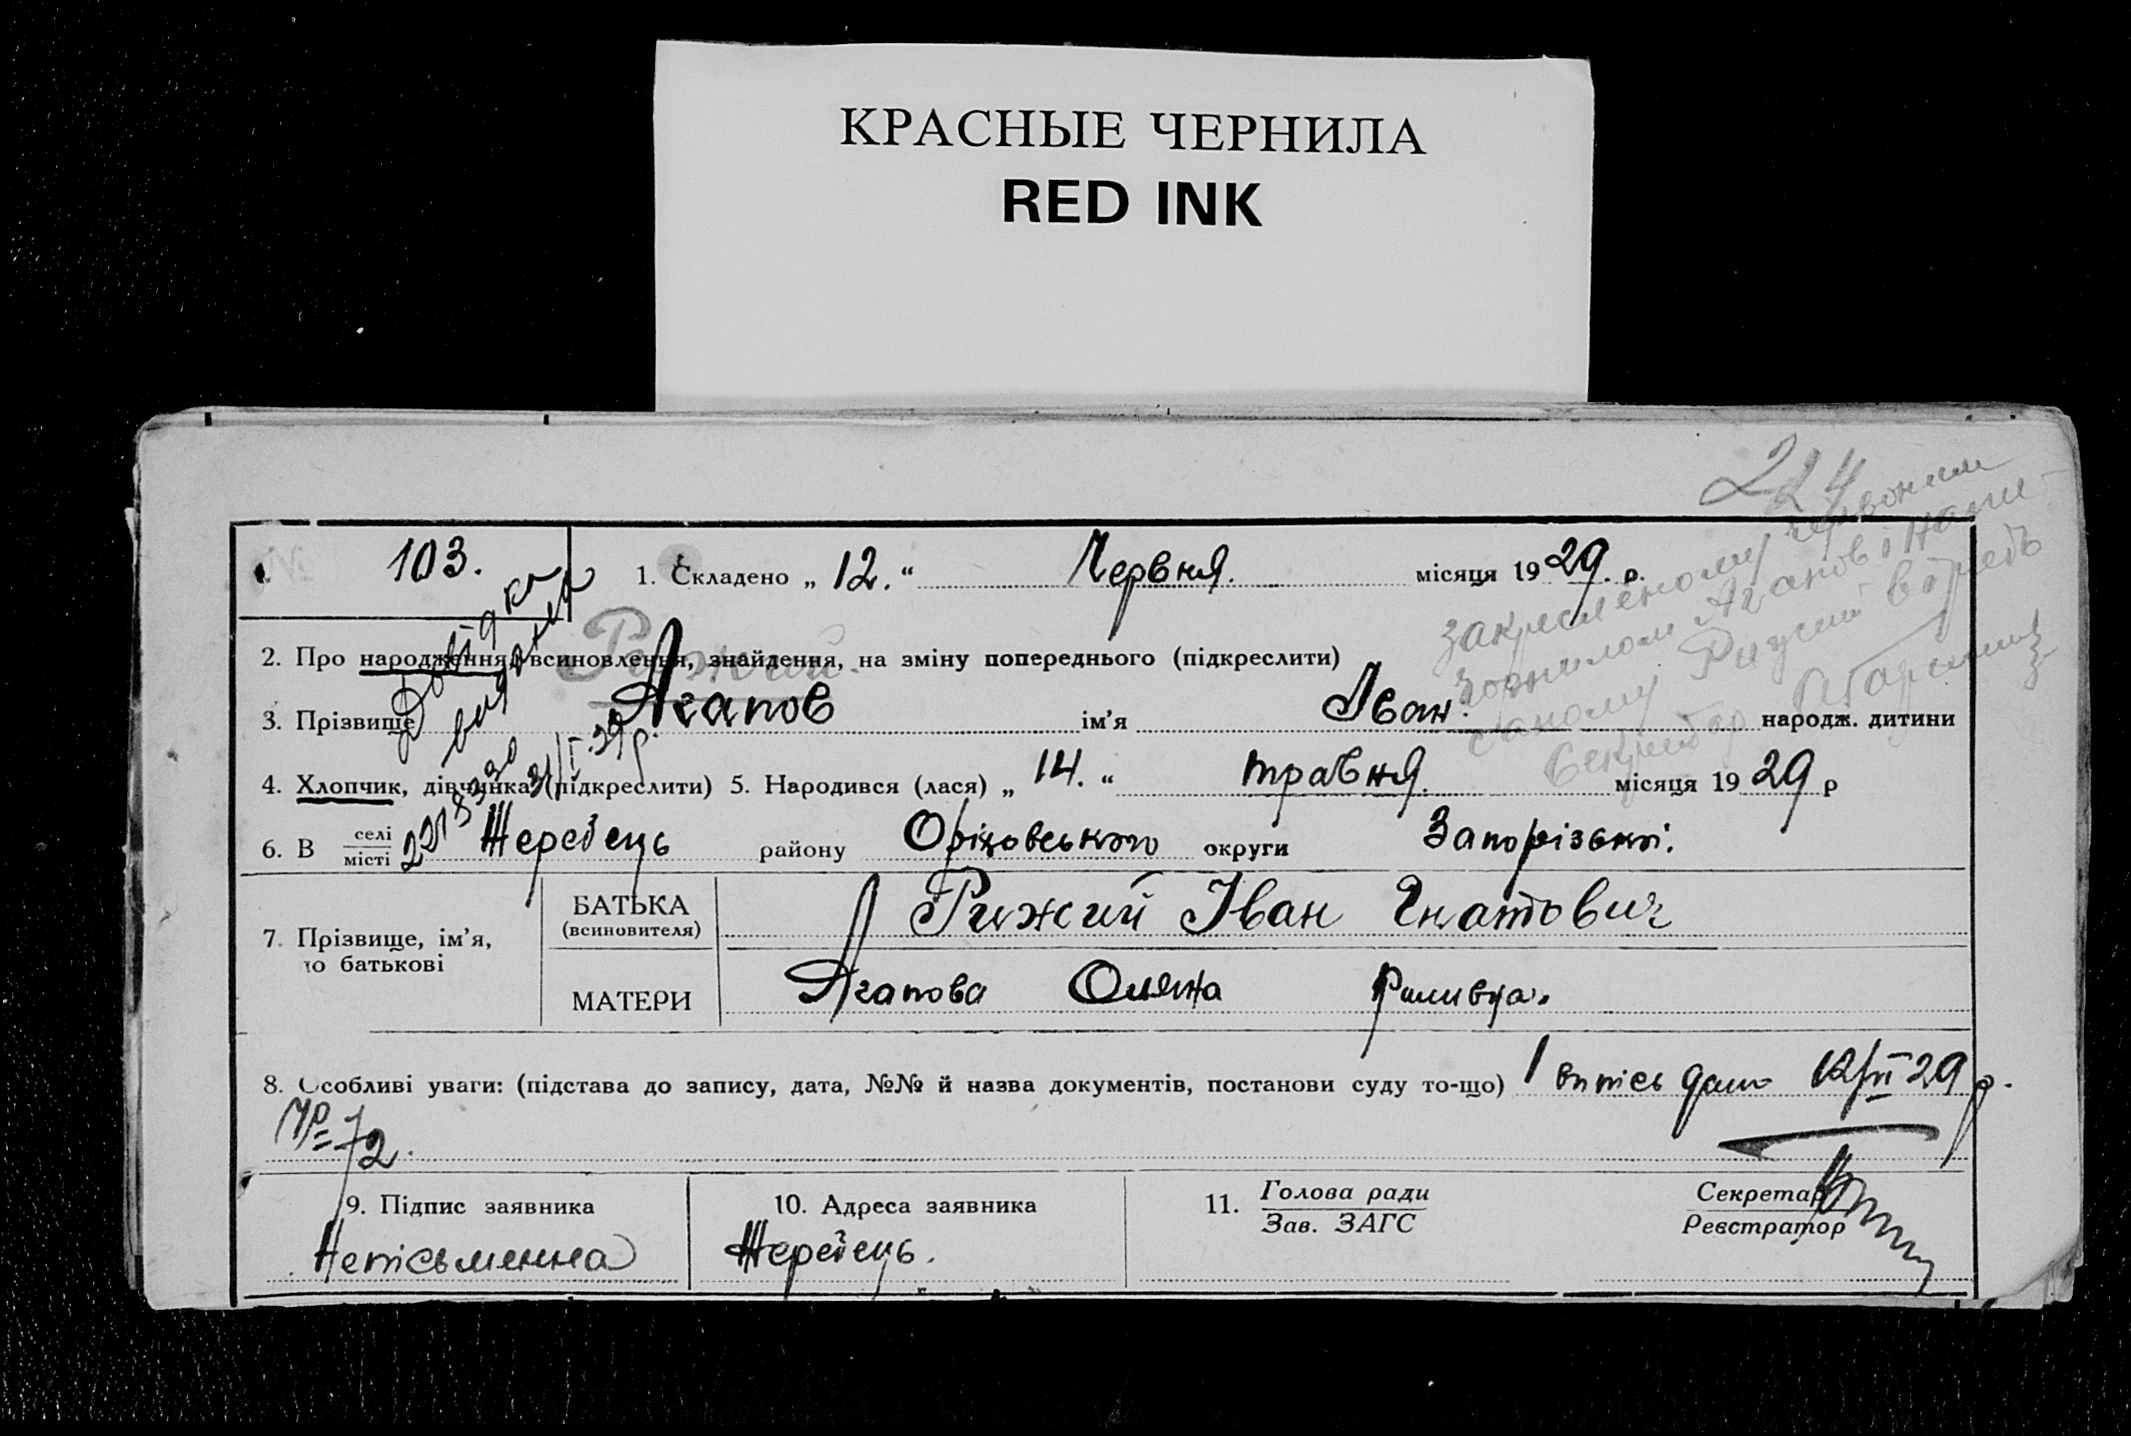 КРАСНЫЕ ЧЕРНИЛА
RED INK
224
закресленому червоним
чорнилом Агапов і напи-
саному Рижий вірить
Секретар
103.
1. Складено „ 12. “ Червня. місяця 1929. р.
Довідка
видана
Рижий.
2. Про народження, всиновлення, знайдення, на зміну попереднього (підкреслити)
3. Прізвище Агапов ім’я Іван. народж. дитини
31/I.39р.
4. Хлопчик, дівчинка (підкреслити) 5. Народився (лася) „ 14. “ травня. місяця 1929 р
6. В селі місті Жеребець району Оріховського округи Запорізької.
7. Прізвище, ім’я, по батькові
БАТЬКА (всиновителя) Рижий Іван Гнатович
МАТЕРИ Агапова Оляна
8. Особливі уваги: (підстава до запису, дата, №№ й назва документів, постанови суду то-що) 1 випісь дано 12/VI 29 р.
№ 72.
9. Підпис заявника
Неписьменна
10. Адреса заявника
Жеребець.
11. Голова ради
Зав. ЗАГС
Секретар
Реєстратор